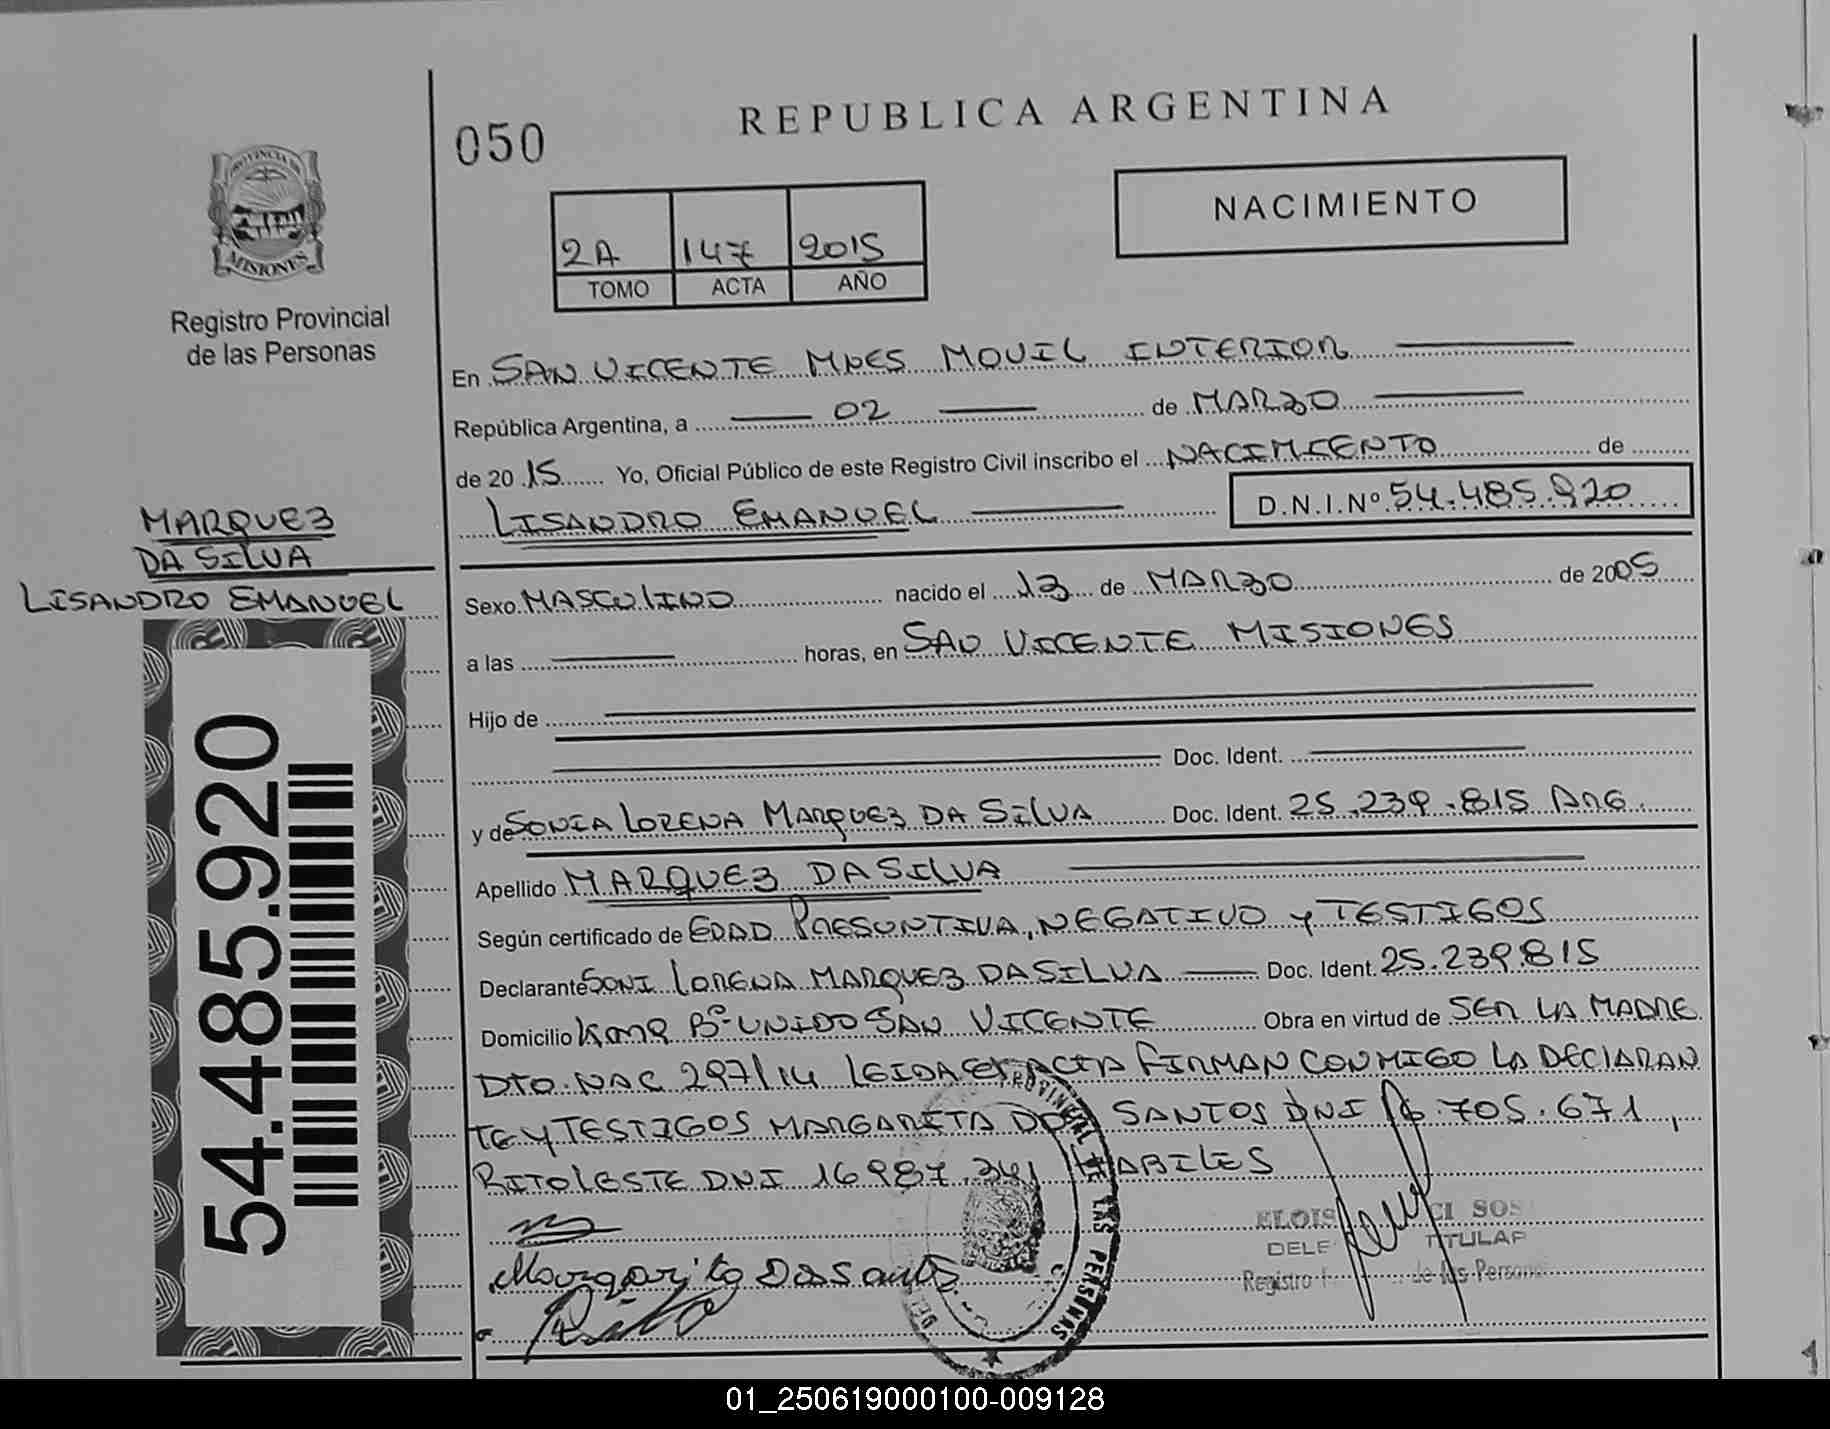 REPUBLICA ARGENTINA
050
PROVINCIA DE
MISIONES
Registro Provincial
de las Personas
2A 147 2015
TOMO ACTA AÑO
NACIMIENTO
En SAN VICENTE MNES MOVIL INTERIOR
República Argentina, a 02 de MARZO
de 2015 Yo, Oficial Público de este Registro Civil inscribo el NACIMIENTO de
LISANDRO EMANUEL D.N.I.Nº 54.485.920
MARQUEZ
DA SILVA
LISANDRO EMANUEL
54.485.920
Sexo MASCULINO nacido el 13 de MARZO de 2005
a las horas, en SAN VICENTE MISIONES
Hijo de
Doc. Ident.
y de SONIA LORENA MARQUEZ DA SILVA Doc. Ident. 25.239.815 ARG.
Apellido MARQUEZ DA SILVA
Según certificado de EDAD PRESUNTIVA, NEGATIVO y TESTIGOS
Declarante SONI LORENA MARQUEZ DA SILVA Doc. Ident. 25.239.815
Domicilio Km 9 Bº UNIDO SAN VICENTE Obra en virtud de SER LA MADRE
DTO. NAC 297/14 LEIDA EL ACTA FIRMAN CONMIGO LA DECLARAN
TE Y TESTIGOS MARGARITA DOS SANTOS DNI 705.671,
RITO LESTE DNI 16987.341 HABILES
Margarita Dos Santos
Rito
PROVINCIAL DE LAS PERSONAS
TITULAR
Registro de las Personas
01_250619000100-009128